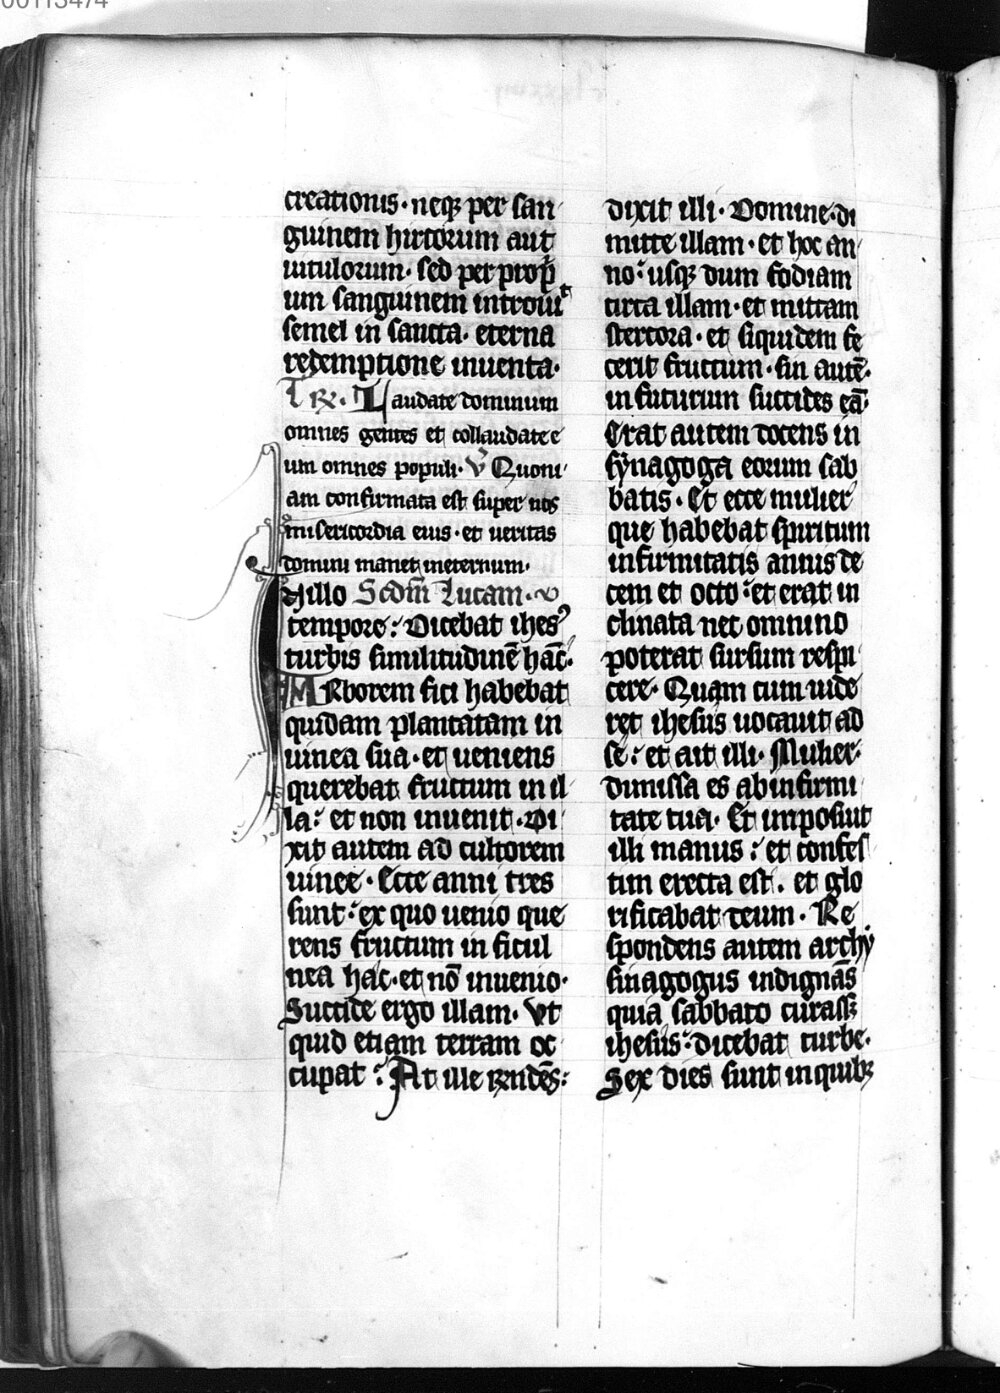 00113474
creationis · neqꝫ per san
guinem hircorum aut
uitulorum · sed per propͥ
um sanguinem introiuiᵗ
semel in sancta · eterna
redemptione inuenta ·
Tr̄ · Laudate dominum
omnes gentes et collaudate e
um omnes populi · V̾ Quoni
am confirmata est super nos
misericordia eius · et ueritas
domini manet ineternum ·
In illo Scdm̄ Lucam ·
tempore : Dicebat ihesꝰ
turbis similitudinē hāc ·
Arborem fici habebat
quidam plantatam in
uinea sua · et ueniens
querebat fructum in il
la : et non inuenit · Di
xit autem ad cultorem
uinee · Ecce anni tres
sunt : ex quo uenio que
rens fructum in ficul
nea hac · et nō inuenio ·
Succide ergo illam · Vt
quid etiam terram oc
cupat : At ille rn̄dēs :
dixit illi · Domine · di
mitte illam · et hoc an
no : usqꝫ dum fodiam
circa illam · et mittam
stercora · et siquidem fe
cerit fructum · sin autē ·
in futurum succides eā ·
Erat autem docens in
synagoga eorum sab
batis · Et ecce mulier
que habebat spiritum
infirmitatis annis de
cem et octo : et erat in
clinata nec omnino
poterat sursum respi
cere · Quam cum uide
ret ihesus uocauit ad
se : et ait illi · Mulier ·
dimissa es ab infirmi
tate tua · Et imposuit
illi manus : et confes
tim erecta est · et glo
rificabat deum · Re
spondens autem archy
sinagogus indignās
quia sabbato curassꝫ
ihesus : dicebat turbe ·
Sex dies sunt in quibꝫ